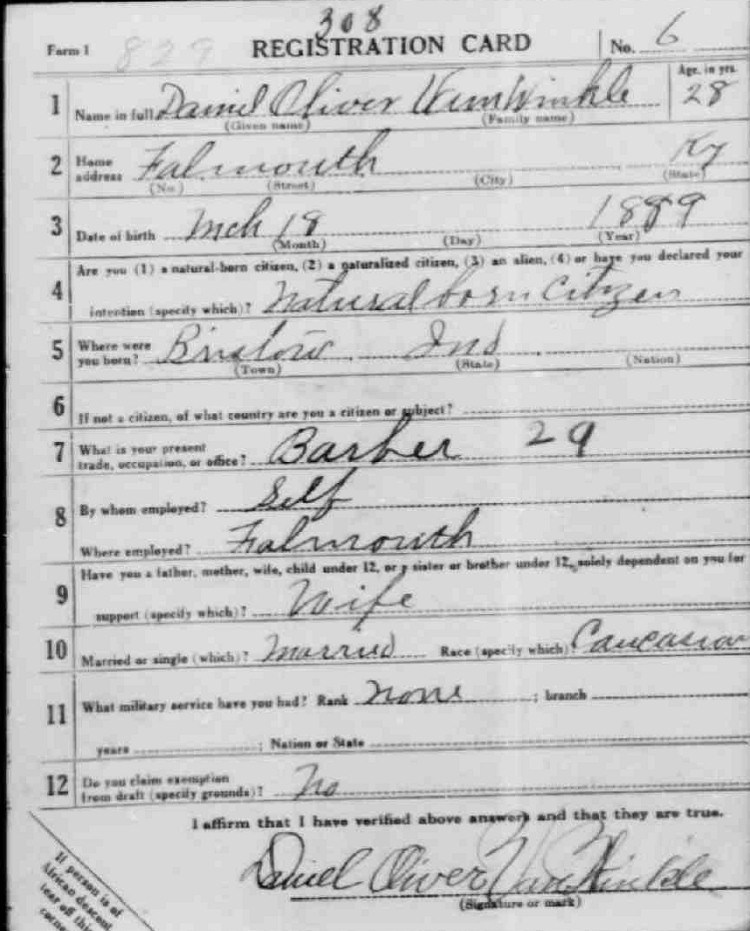 308
Form 1 829 REGISTRATION CARD No. 6
Age, in yrs.
1 Name in full Daniel Oliver VanWinkle 28
(Given name) (Family name)
2 Home address Falmouth Ky
(No.) (Street) (City) (State)
3 Date of birth Mch 18 1889
(Month) (Day) (Year)
4 Are you (1) a natural-born citizen, (2) a naturalized citizen, (3) an alien, (4) or have you declared your
intention (specify which)? Natural born Citizen
5 Where were you born? Ind
(Town) (State) (Nation)
6 If not a citizen, of what country are you a citizen or subject?
7 What is your present trade, occupation, or office? Barber 29
8 By whom employed? Self
Where employed? Falmouth
9 Have you a father, mother, wife, child under 12, or a sister or brother under 12, solely dependent on you for
support (specify which)? Wife
10 Married or single (which)? Married Race (specify which)? Caucasian
11 What military service have you had? Rank None ; branch
years ; Nation or State
12 Do you claim exemption from draft (specify grounds)? No
I affirm that I have verified above answers and that they are true.
Daniel Oliver VanWinkle
(Signature or mark)
If person is of
African descent
tear off this
corner